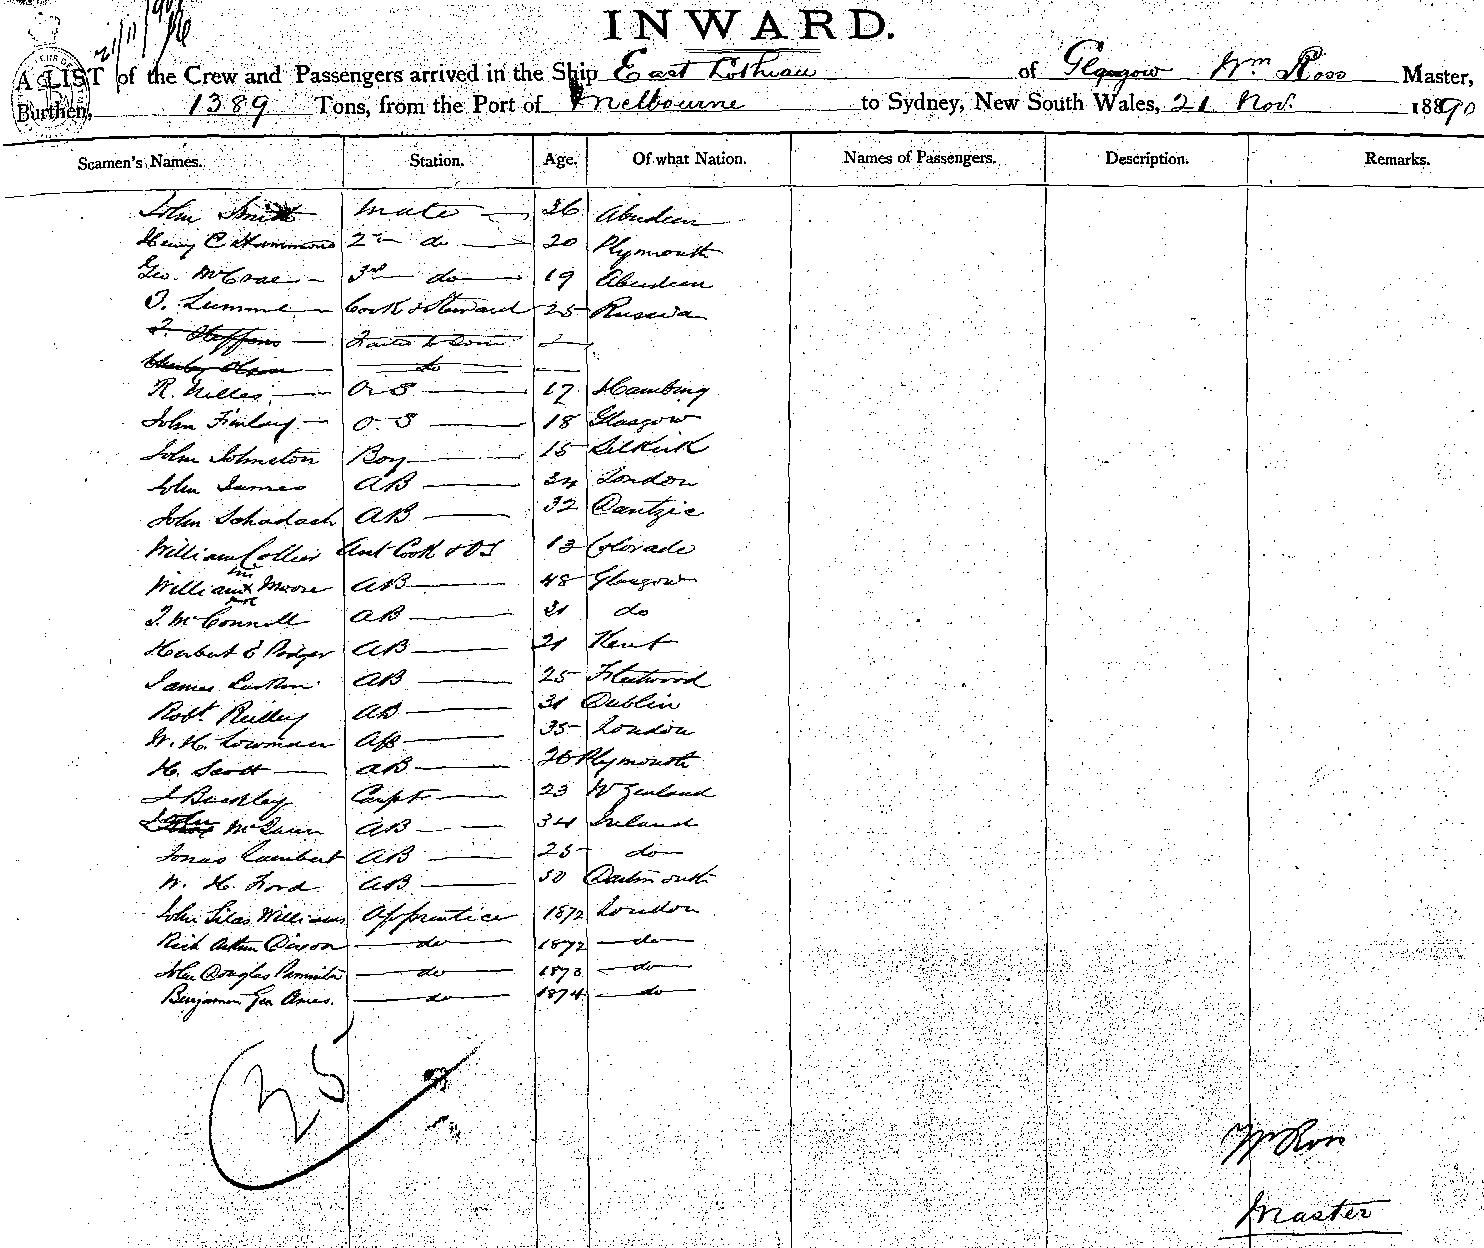 21/11/90
INWARD.
A LIST of the Crew and Passengers arrived in the Ship East Lothian of Glasgow Wm Ross Master,
Burthen, 1389 Tons, from the Port of Melbourne to Sydney, New South Wales, 21 Nov. 1890
Seamen's Names. Station. Age. Of what Nation. Names of Passengers. Description. Remarks.
John Smith Mate 36 Aberdeen
Henry C Hammond 2nd do 20 Plymouth
Geo. McCrae 3rd do 19 Aberdeen
Cook & Steward 25 Russia
Steffens
Olsen do
R. O S 17 Hamburg
John Finlay O. S 18 Glasgow
John Johnston Boy 15 Selkirk
John James AB 24 London
John Schadach AB 32 Dantzic
William Collier Ast Cook & OS 13 Colorado
William X Moore AB 48 Glasgow
J. McConnell AB 31 do
Herbert E Podger AB 21 Kent
James AB 25 Fleetwood
Robt Reilley AB 31 Dublin
W. H. Lowman AB 35 London
H. Scott AB 26 Plymouth
J Buckley Carpt 23 N Zealand
John AB 34 Ireland
Jonas Lambert AB 25 do
W. H. Ford AB 30 Dartmouth
John Silas Williams Apprentice 1872 London
Rich Arthur Dixon do 1872 do
John Douglas do 1873 do
Benjamin Geo Ames. do 1874 do
25
Wm Ross
Master